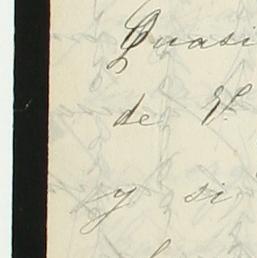 Quasi
de V.
y si